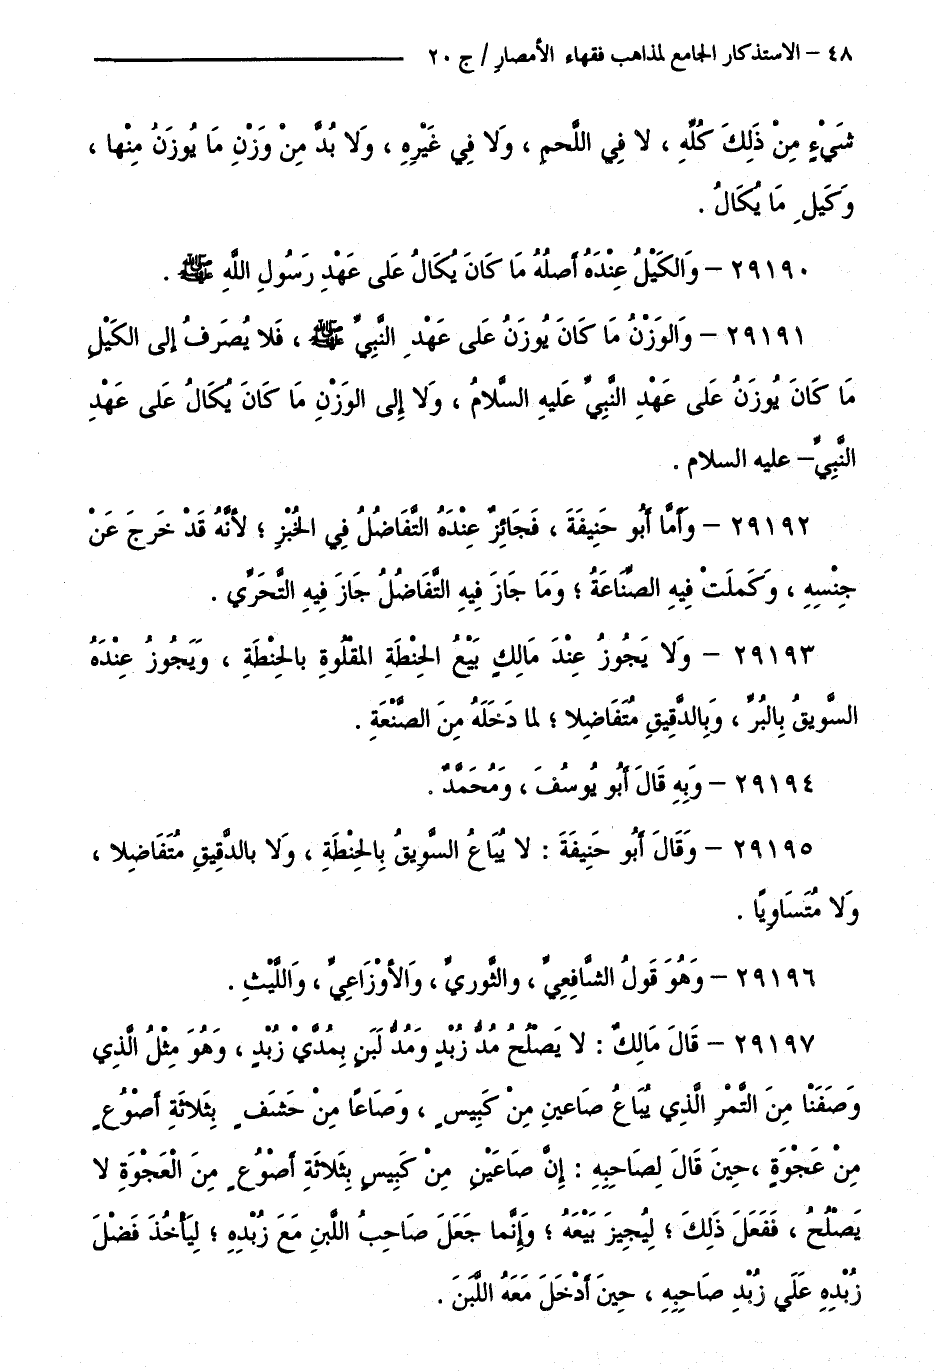 ٤٨ – الاستذكار الجامع لمذاهب فقهاء الأمصارِ / ج ٢٠
شَيْءٍ مِنْ ذَلِكَ كُلِّهِ ، لا فِي اللَّحمِ ، وَلا فِي غَيْرِهِ ، وَلا بُدَّ مِنْ وَزْنِ مَا يُوزَنُ مِنْها ،
وَكَيلِ مَا يُكَالُ .
٢٩١٩٠ – وَالكَيْلُ عِنْدَهُ أصلُهُ مَا كَانَ يُكَالُ عَلى عَهْدِ رَسُولِ اللَّهِ ﷺ .
٢٩١٩١ – وَالوَزْنُ مَا كَانَ يُوزَنُ عَلى عَهْدِ النَّبِيِّ ﷺ ، فَلا يُصَرَفُ إلى الكَيْلِ
مَا كَانَ يُوزَنُ عَلى عَهْدِ النَّبِيِّ عَليهِ السَّلامُ ، وَلا إِلى الوَزْنِ مَا كَانَ يُكَالُ عَلى عَهْدِ
النَّبِيِّ – عليه السلام .
٢٩١٩٢ – وَأَمَّا أَبُو حَنِيفَةَ ، فَجَائِزٌ عِنْدَهُ التَّفَاضُلُ فِي الخُبْزِ ؛ لأنَّهُ قَدْ خَرجَ عَنْ
جِنْسِهِ ، وَكَملَتْ فِيهِ الصِّنَاعَةُ ؛ وَمَا جَازَ فِيهِ التَّفَاضُلُ جَازَ فِيهِ التَّحَرِّي .
٢٩١٩٣ – وَلا يَجُوزُ عِنْدَ مَالِكٍ بَيْعُ الحِنطَةِ المَقْلُوةِ بالحِنْطَةِ ، وَيَجُوزُ عِنْدَهُ
السَّويقُ بِالبُرِّ ، وَبِالدَّقِيقِ مُتَفَاضِلا ؛ لما دَخَلَهُ مِنَ الصَّنْعَةِ .
٢٩١٩٤ – وَبِهِ قَالَ أَبُو يُوسُفَ ، وَمُحَمَّدٌ .
٢٩١٩٥ – وَقَالَ أَبُو حَنِيفَةَ : لا يُبَاعُ السَّوِيقُ بِالحِنْطَةِ ، وَلا بالدَّقِيقِ مُتَفَاضِلا ،
وَلا مُتَسَاوِيًا .
٢٩١٩٦ – وَهُوَ قَولُ الشَّافِعِيِّ ، والثَّورِيِّ ، وَالأوْزَاعِيِّ ، وَاللَّيْثِ .
٢٩١٩٧ – قَالَ مَالِكٌ : لا يَصْلُحُ مُدُّ زُبْدٍ وَمُدُّ لَبَنٍ بِمُدَّيْ زُبْدٍ ، وَهُوَ مِثْلُ الَّذِي
وَصَفَنْا مِنَ التَّمْرِ الَّذِي يُبَاعُ صَاعينِ مِنْ كَبِيسٍ ، وَصَاعًا مِنْ حَشَفٍ بِثَلاثَةِ أَصْوُعٍ
مِنْ عَجْوَةٍ ،حِينَ قَالَ لِصَاحِبِهِ : إِنَّ صَاعَيْنِ مِنْ كَبِيسٍ بِثَلاثَةِ أَصْوُعٍ مِنَ الْعَجْوَةِ لا
يَصْلُحُ ، فَفَعَلَ ذَلِكَ ؛ لِيُجِيزَ بَيْعَهُ ؛ وَإِنَّما جَعَلَ صَاحِبُ اللَّبنِ مَعَ زُبْدِهِ ؛ لِيَأْخُذَ فَضْلَ
زُبْدِهِ عَلَي زُبْدِ صَاحِبِهِ ، حِينَ أَدْخَلَ مَعَهُ اللَّبَنَ .